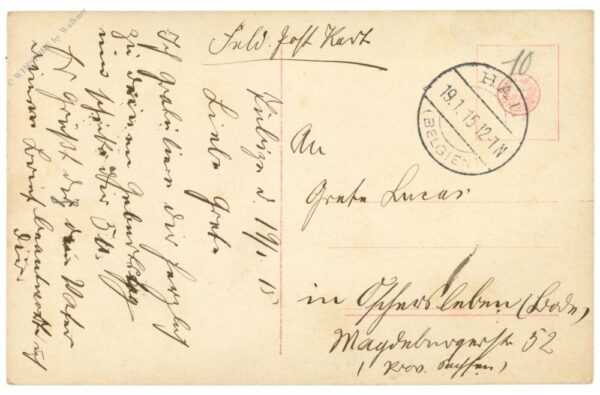 Feld. Post Kart
10
HAL
19.1.15.12-1N
(BELGIEN)
d. 19/1 15
Liebe Grete
Ich gratuliere dir herzlich
zu deinem Geburtstag
und schicke dir 5 M.
Es grüßt dich dein Vater
deinen Brief beantwortet ich
dir.
An
Grete Lucas
in Oschersleben (Bode)
Magdeburgerstr 52
(Prov. Sachsen)